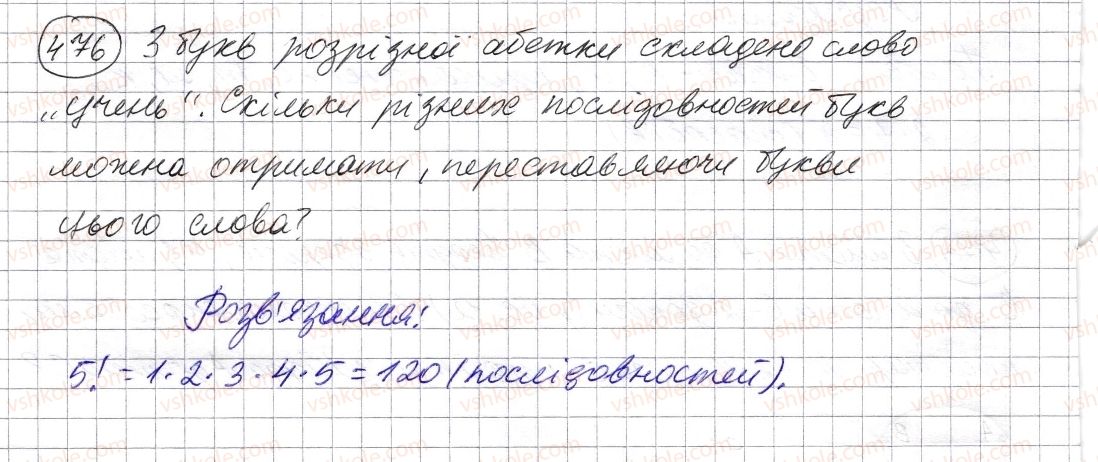 476 З букв розрізної абетки складено слово
„учень". Скільки різних послідовностей букв
можна отримати, переставляючи букви
цього слова?
Розв'язання:
5! = 1·2·3·4·5 = 120 (послідовностей).